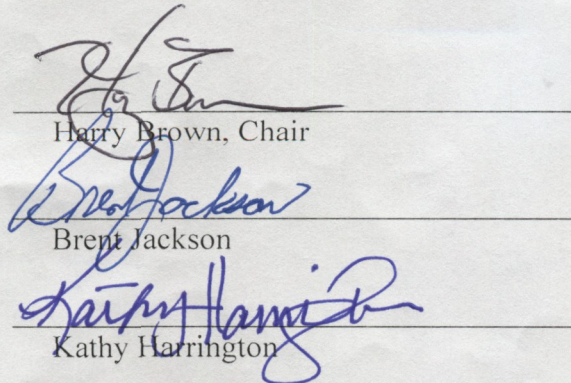 Harry Brown, Chair
Brent Jackson
Brent Jackson
Kathy Harrington
Kathy Harrington